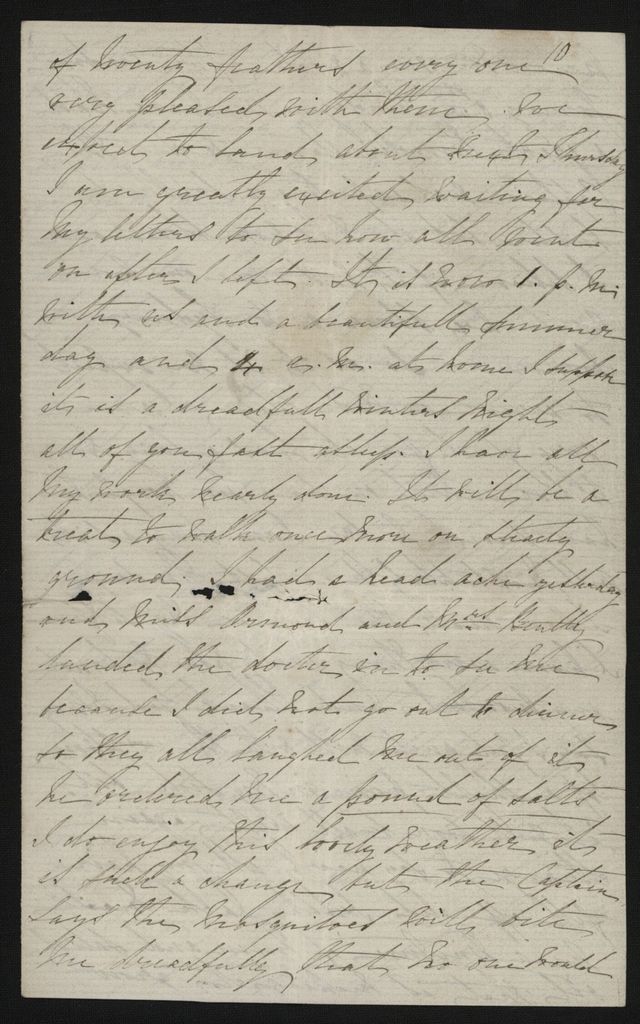 10
of twenty feathers every one
very pleased with them. We
expect to land about next Thursday
I am greatly excited waiting for
my letters to see how all went
on after I left. It is now 1. p.m.
with us and a beautifull summer
day and 4 a.m. at home I suppose
it is a dreadfull winters night
all of you fast asleep. I have all
my work nearly done. It will be a
treat to walk once more on steady
ground. I had a head ache yesterday
and Miss Ormond and Mrs
handed the doctor in to see me
because I did not go out to dinner
so they all laughed me out of it
he ordered me a pound of salts
I do enjoy this lovely weather it
is such a change but the Captain
says the mosquitoes will bite
me dreadfully that no one would